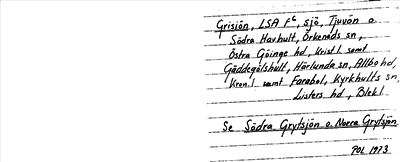 Grisjön, LSA F6, sjö, Tjuvön o.
Södra Havhult, Örkeneds sn,
Östra Göinge hd, Krist.l. samt
Gäddegölshult, Härlunda sn, Allbo hd,
Kron.l. samt Farabol, Kyrkhults sn,
Listers hd, Blek.l.
Se Södra Grytsjön o. Norra Grytsjön
POL 1973